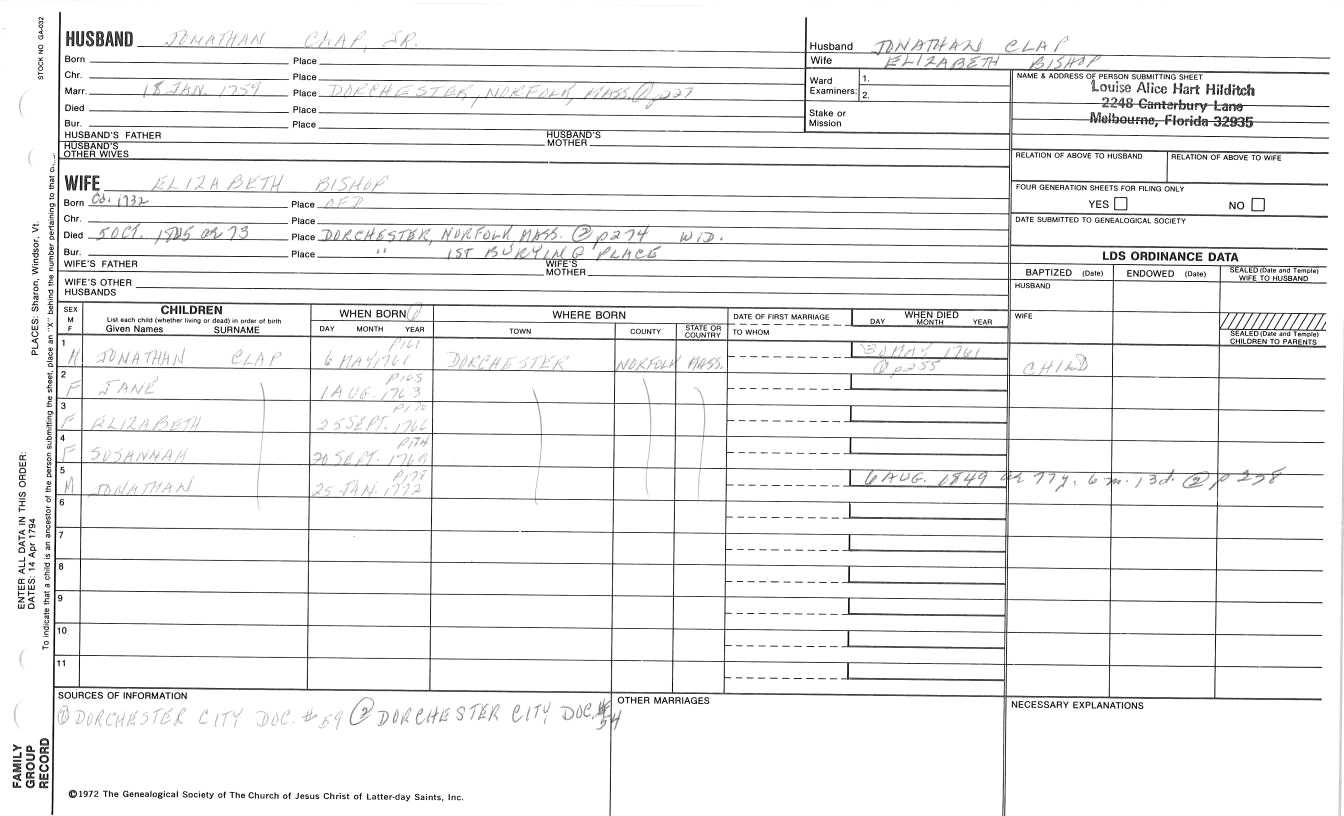 STOCK NO. GA-032
HUSBAND JONATHAN CLAP, SR.
Born Place
Chr. Place
Marr. 18 JAN. 1759 Place DORCHESTER, NORFOLK, MASS. ① p227
Died Place
Bur. Place
HUSBAND'S FATHER HUSBAND'S MOTHER
HUSBAND'S OTHER WIVES
WIFE ELIZABETH BISHOP
Born Ca. 1732 Place OFD
Chr. Place
Died 5 OCT. Place DORCHESTER, NORFOLK MASS. ② p274 WID.
Bur. " Place 1ST BURYING PLACE
WIFE'S FATHER WIFE'S MOTHER
WIFE'S OTHER HUSBANDS
Husband JONATHAN CLAP
Wife ELIZABETH BISHOP
Ward Examiners: 1.
2.
Stake or Mission
NAME & ADDRESS OF PERSON SUBMITTING SHEET
Louise Alice Hart Hilditch
2248 Canterbury Lane
Melbourne, Florida 32935
RELATION OF ABOVE TO HUSBAND RELATION OF ABOVE TO WIFE
FOUR GENERATION SHEETS FOR FILING ONLY
YES NO
DATE SUBMITTED TO GENEALOGICAL SOCIETY
LDS ORDINANCE DATA
BAPTIZED (Date) ENDOWED (Date) SEALED (Date and Temple) WIFE TO HUSBAND
HUSBAND
WIFE
SEALED (Date and Temple) CHILDREN TO PARENTS
SEX M F
CHILDREN
List each child (whether living or dead) in order of birth
Given Names SURNAME
WHEN BORN ①
DAY MONTH YEAR
WHERE BORN
TOWN COUNTY STATE OR COUNTRY
DATE OF FIRST MARRIAGE
TO WHOM
WHEN DIED
DAY MONTH YEAR
1 M JONATHAN CLAP p161 6 MAY 1761 DORCHESTER NORFOLK MASS. MAY 1761 ① p255 CHILD
2 F JANE p165 1 AUG. 1763
3 F ELIZABETH p170 25 SEPT. 1766
4 F SUSANNAH p174 20 SEPT. 1769
5 M JONATHAN 25 JAN. 1772 6 AUG. 1849 ae 77y. 6 m. 13d. ② p 238
6
7
8
9
10
11
SOURCES OF INFORMATION
① DORCHESTER CITY DOC. #59 ② DORCHESTER CITY DOC. #54
OTHER MARRIAGES
NECESSARY EXPLANATIONS
©1972 The Genealogical Society of The Church of Jesus Christ of Latter-day Saints, Inc.
PLACES: Sharon, Windsor, Vt.
ENTER ALL DATA IN THIS ORDER:
DATES: 14 Apr 1794
To indicate that a child is an ancestor of the person submitting the sheet, place an "X" behind the number pertaining to that
FAMILY
GROUP
RECORD